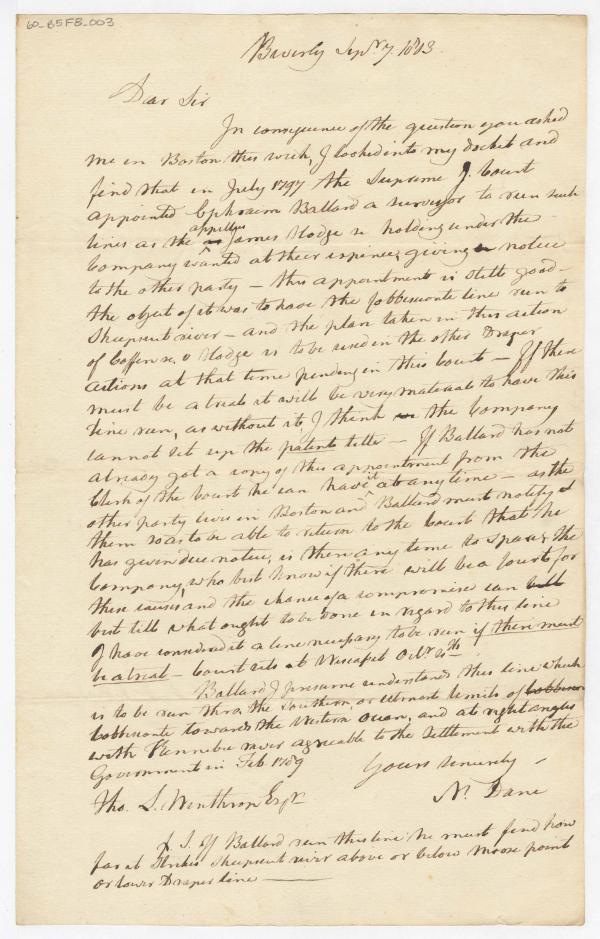 60-B5F8-003
Beverly Sepr. 7. 1803.
Dear Sir
In consequence of the question you asked
me in Boston this week, I looked into my docket and
find that in July 1797 the Supreme J. Court
appointed Ephraim Ballard a surveyor to run such
lines as the appillees James Hodge &c holding under the
Company wanted at their expence, giving notice
to the other party — this appointment is still good —
the object of it was to have the Cobbiseconte line run to
Sheepscut river — and the plan taken in this action
of Coffen &c v Hodge is to be used in the other Draper
actions at that time pending in this Court — If there
must be a trial it will be very material to have this
line run, as without it, I think the Company
cannot set up the patent title — If Ballard has not
already got a copy of this appointment from the
Clerk of the Court he can have it at any time — as the
other party live in Boston and Ballard must notify
them so as to be able to return to the Court that he
has given due notice, is then any time to spare; the
Company, who best know if there will be a Court for
these causes, and the chance of a compromise can
best tell what ought to be done in regard to this line
I have considered it a line necessary to be run if there must
be a trial — Court sits at Wiscaset Octr.
Ballard I presume understands this line which
is to be run thro, the Southern, or utmost limits of
Cobbisconte towards the Western Ocean, and at right angles
with Kennebec river agreeable to the Settlement with the
Government in Feb 1789
Yours sincerely —
Tho. L. Winthrop Esqr.
N. Dane
P. S. If Ballard run this line he must find how
far it strikes Sheepscut river above or below Moose point
or lower Draper line —